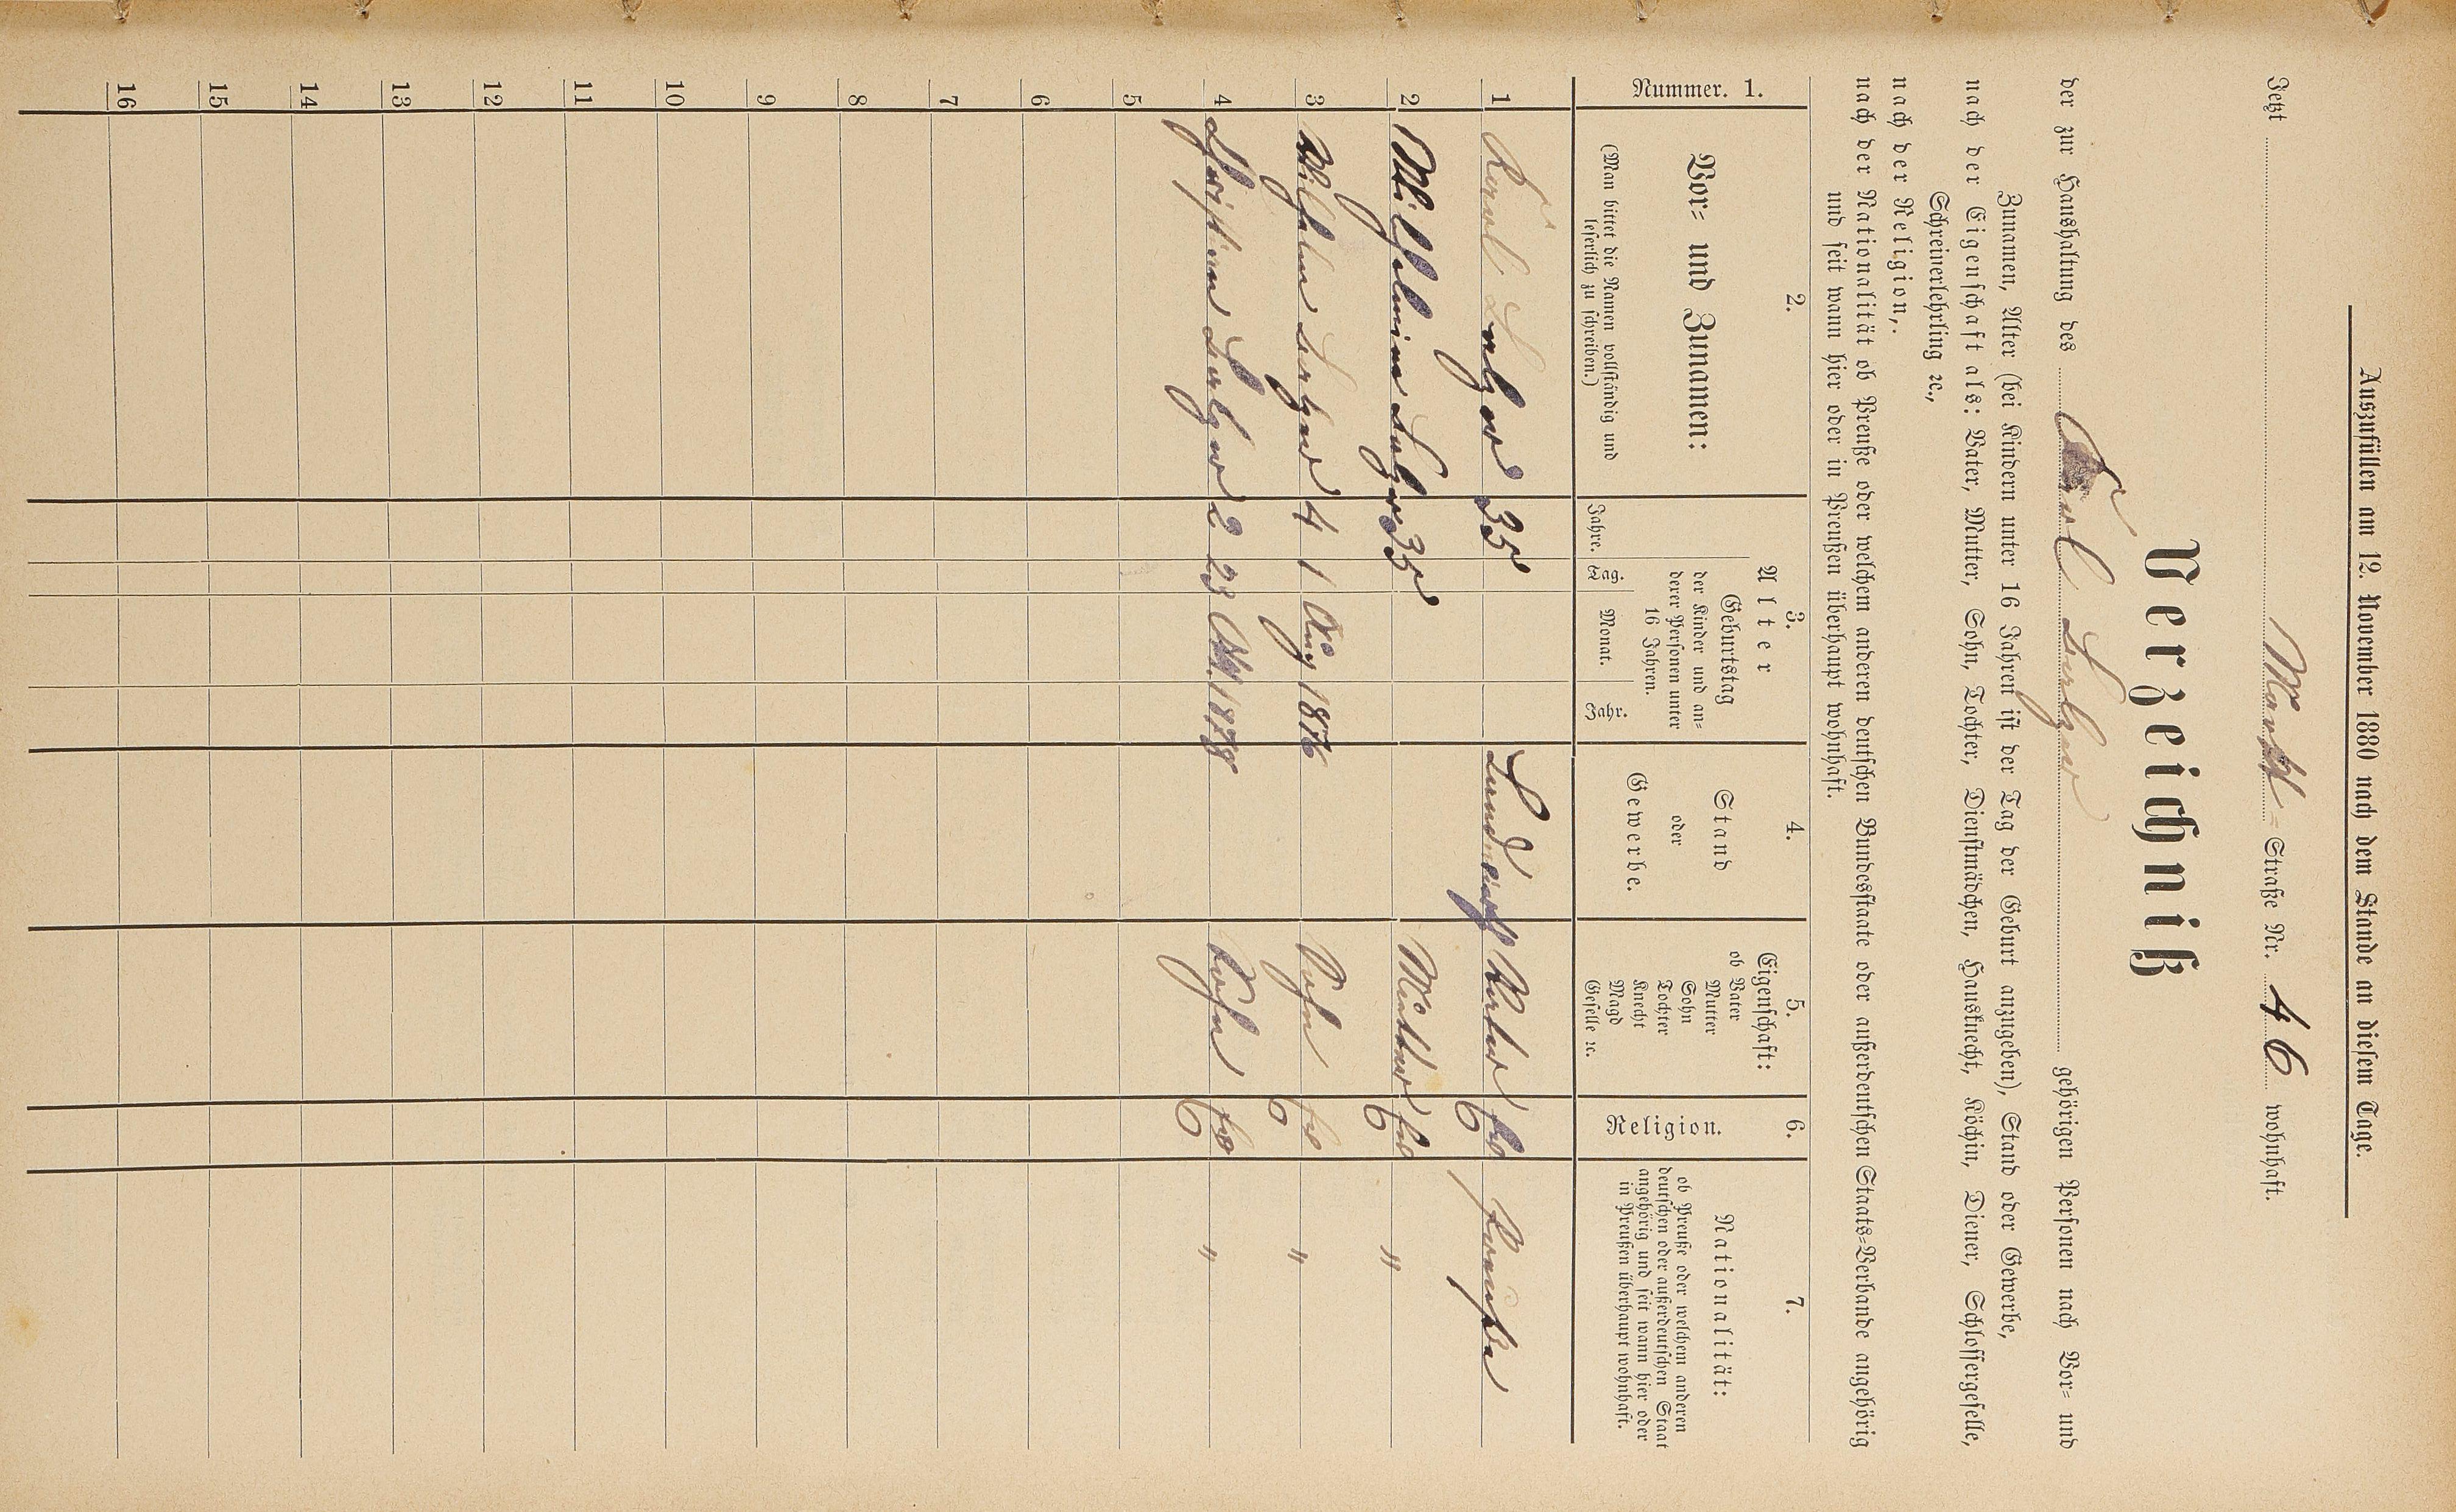 Auszufüllen am 12. November 1880 nach dem Stande an diesem Tage.
Jetzt Markt= Straße Nr. 46 wohnhaft.
Verzeichniß
der zur Haushaltung des Karl gehörigen Personen nach Vor= und
Zunamen, Alter (bei Kindern unter 16 Jahren ist der Tag der Geburt anzugeben), Stand oder Gewerbe,
nach der Eigenschaft als: Vater, Mutter, Sohn, Tochter, Dienstmädchen, Hausknecht, Köchin, Diener, Schlossergeselle,
Schreinerlehrling ꝛc.,
nach der Religion,
nach der Nationalität ob Preuße oder welchem anderen deutschen Bundesstaate oder außerdeutschen Staats=Verbande angehörig
und seit wann hier oder in Preußen überhaupt wohnhaft.
Nummer. 1.
2.
Vor= und Zunamen:
(Man bittet die Namen vollständig und
leserlich zu schreiben.)
3.
Alter
Jahre.
Geburtstag
der Kinder und an=
derer Personen unter
16 Jahren.
Tag. Monat. Jahr.
4.
Stand
oder
Gewerbe.
5.
Eigenschaft:
ob Vater
Mutter
Sohn
Tochter
Knecht
Magd
Geselle ꝛc.
6.
Religion.
7.
Nationalität:
ob Preuße oder welchem anderen
deutschen oder außerdeutschen Staat
angehörig und seit wann hier oder
in Preußen überhaupt wohnhaft.
1 Karl 35 Landwirth Vater Preuße
2 Wilhelmine 35 Mutter "
3 Wilhelm 4 1 Aug 1876 Sohn "
4 Christian 2 23 Okt. 1878 Sohn "
5
6
7
8
9
10
11
12
13
14
15
16